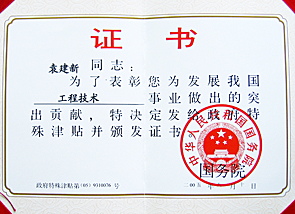 证书
袁建新 同志：
为了表彰您为发展我国
工程技术 事业做出的突
出贡献，特决定发给政府特
殊津贴并颁发证书。
中华人民共和国国务院
国务院
政府特殊津贴第 号